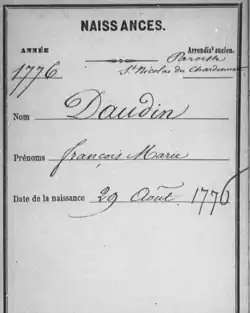 NAISSANCES.
ANNÉE
Arrondisst ancien.
Paroisse
1776
St. Nicolas du Chardonnet
Nom Daudin
Prénoms françois Marie
Date de la naissance 29 Août 1776